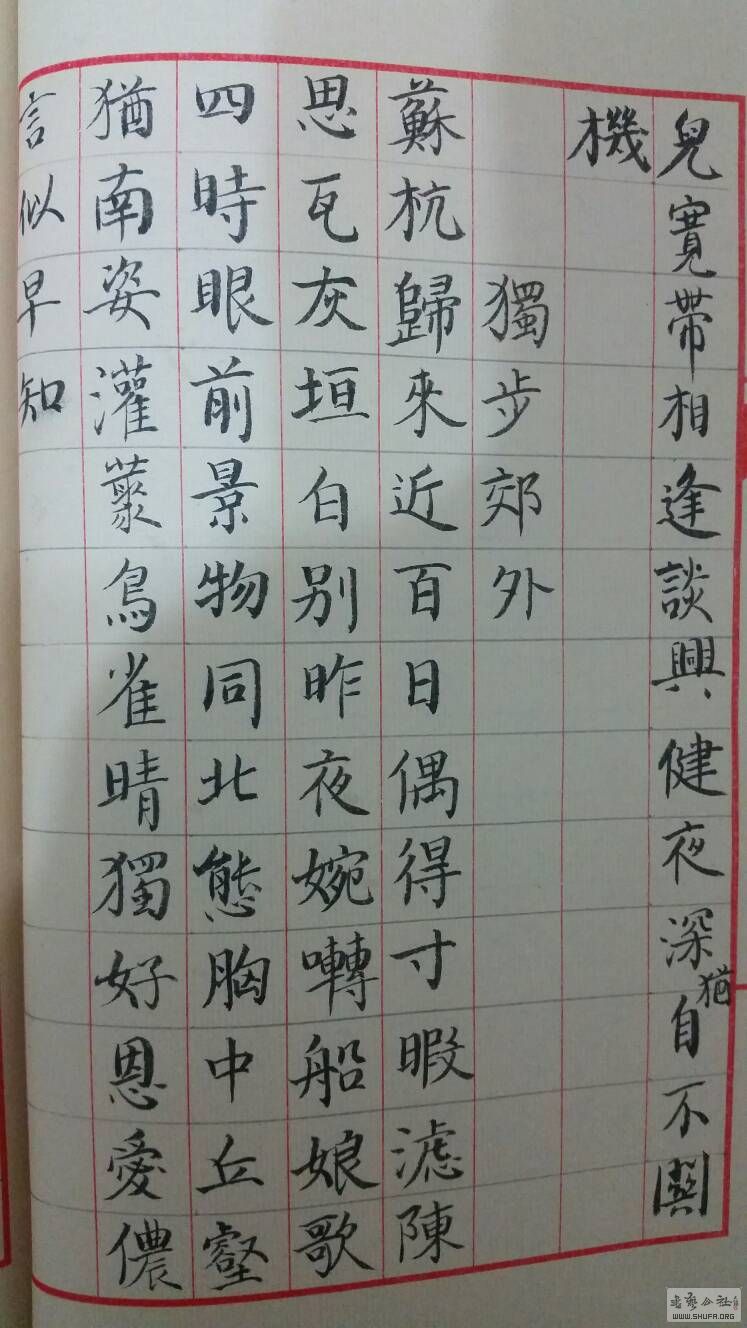 兒寬帶相逢談興健夜深猶自不關
機
獨步郊外
蘇杭歸來近百日偶得寸暇濾陳
思瓦灰垣白別昨夜婉囀船娘歌
四時眼前景物同北態胸中丘壑
猶南姿灌叢鳥雀晴獨好恩愛儂
言似早知
書法公社
WWW.SHUFA.ORG